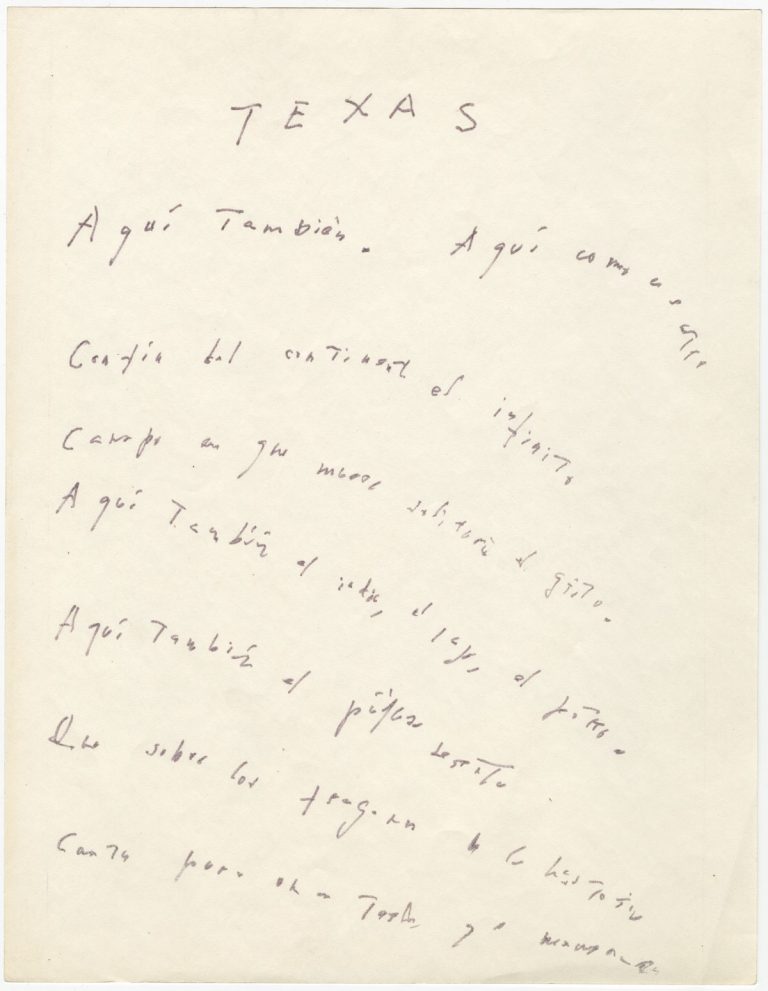 TEXAS
Aquí También. Aquí como en el otro
Confín del continente el infinito
Campo en que muere solitario el grito.
Aquí También el indio, el lazo, el potro.
Aquí También el pájaro secreto
Que sobre los fragores de la historia
Canta para una Tarde y su memoria